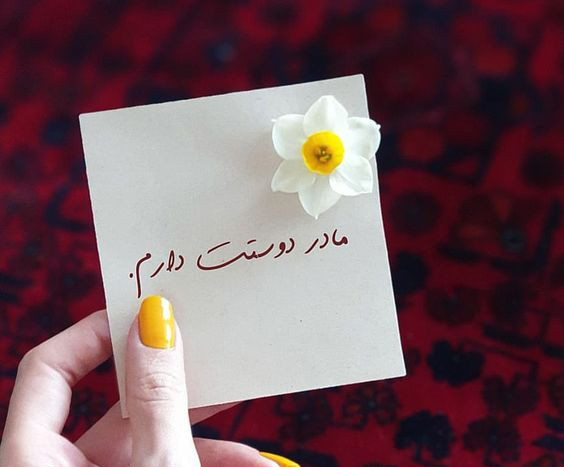 مادر دوستت دارم.